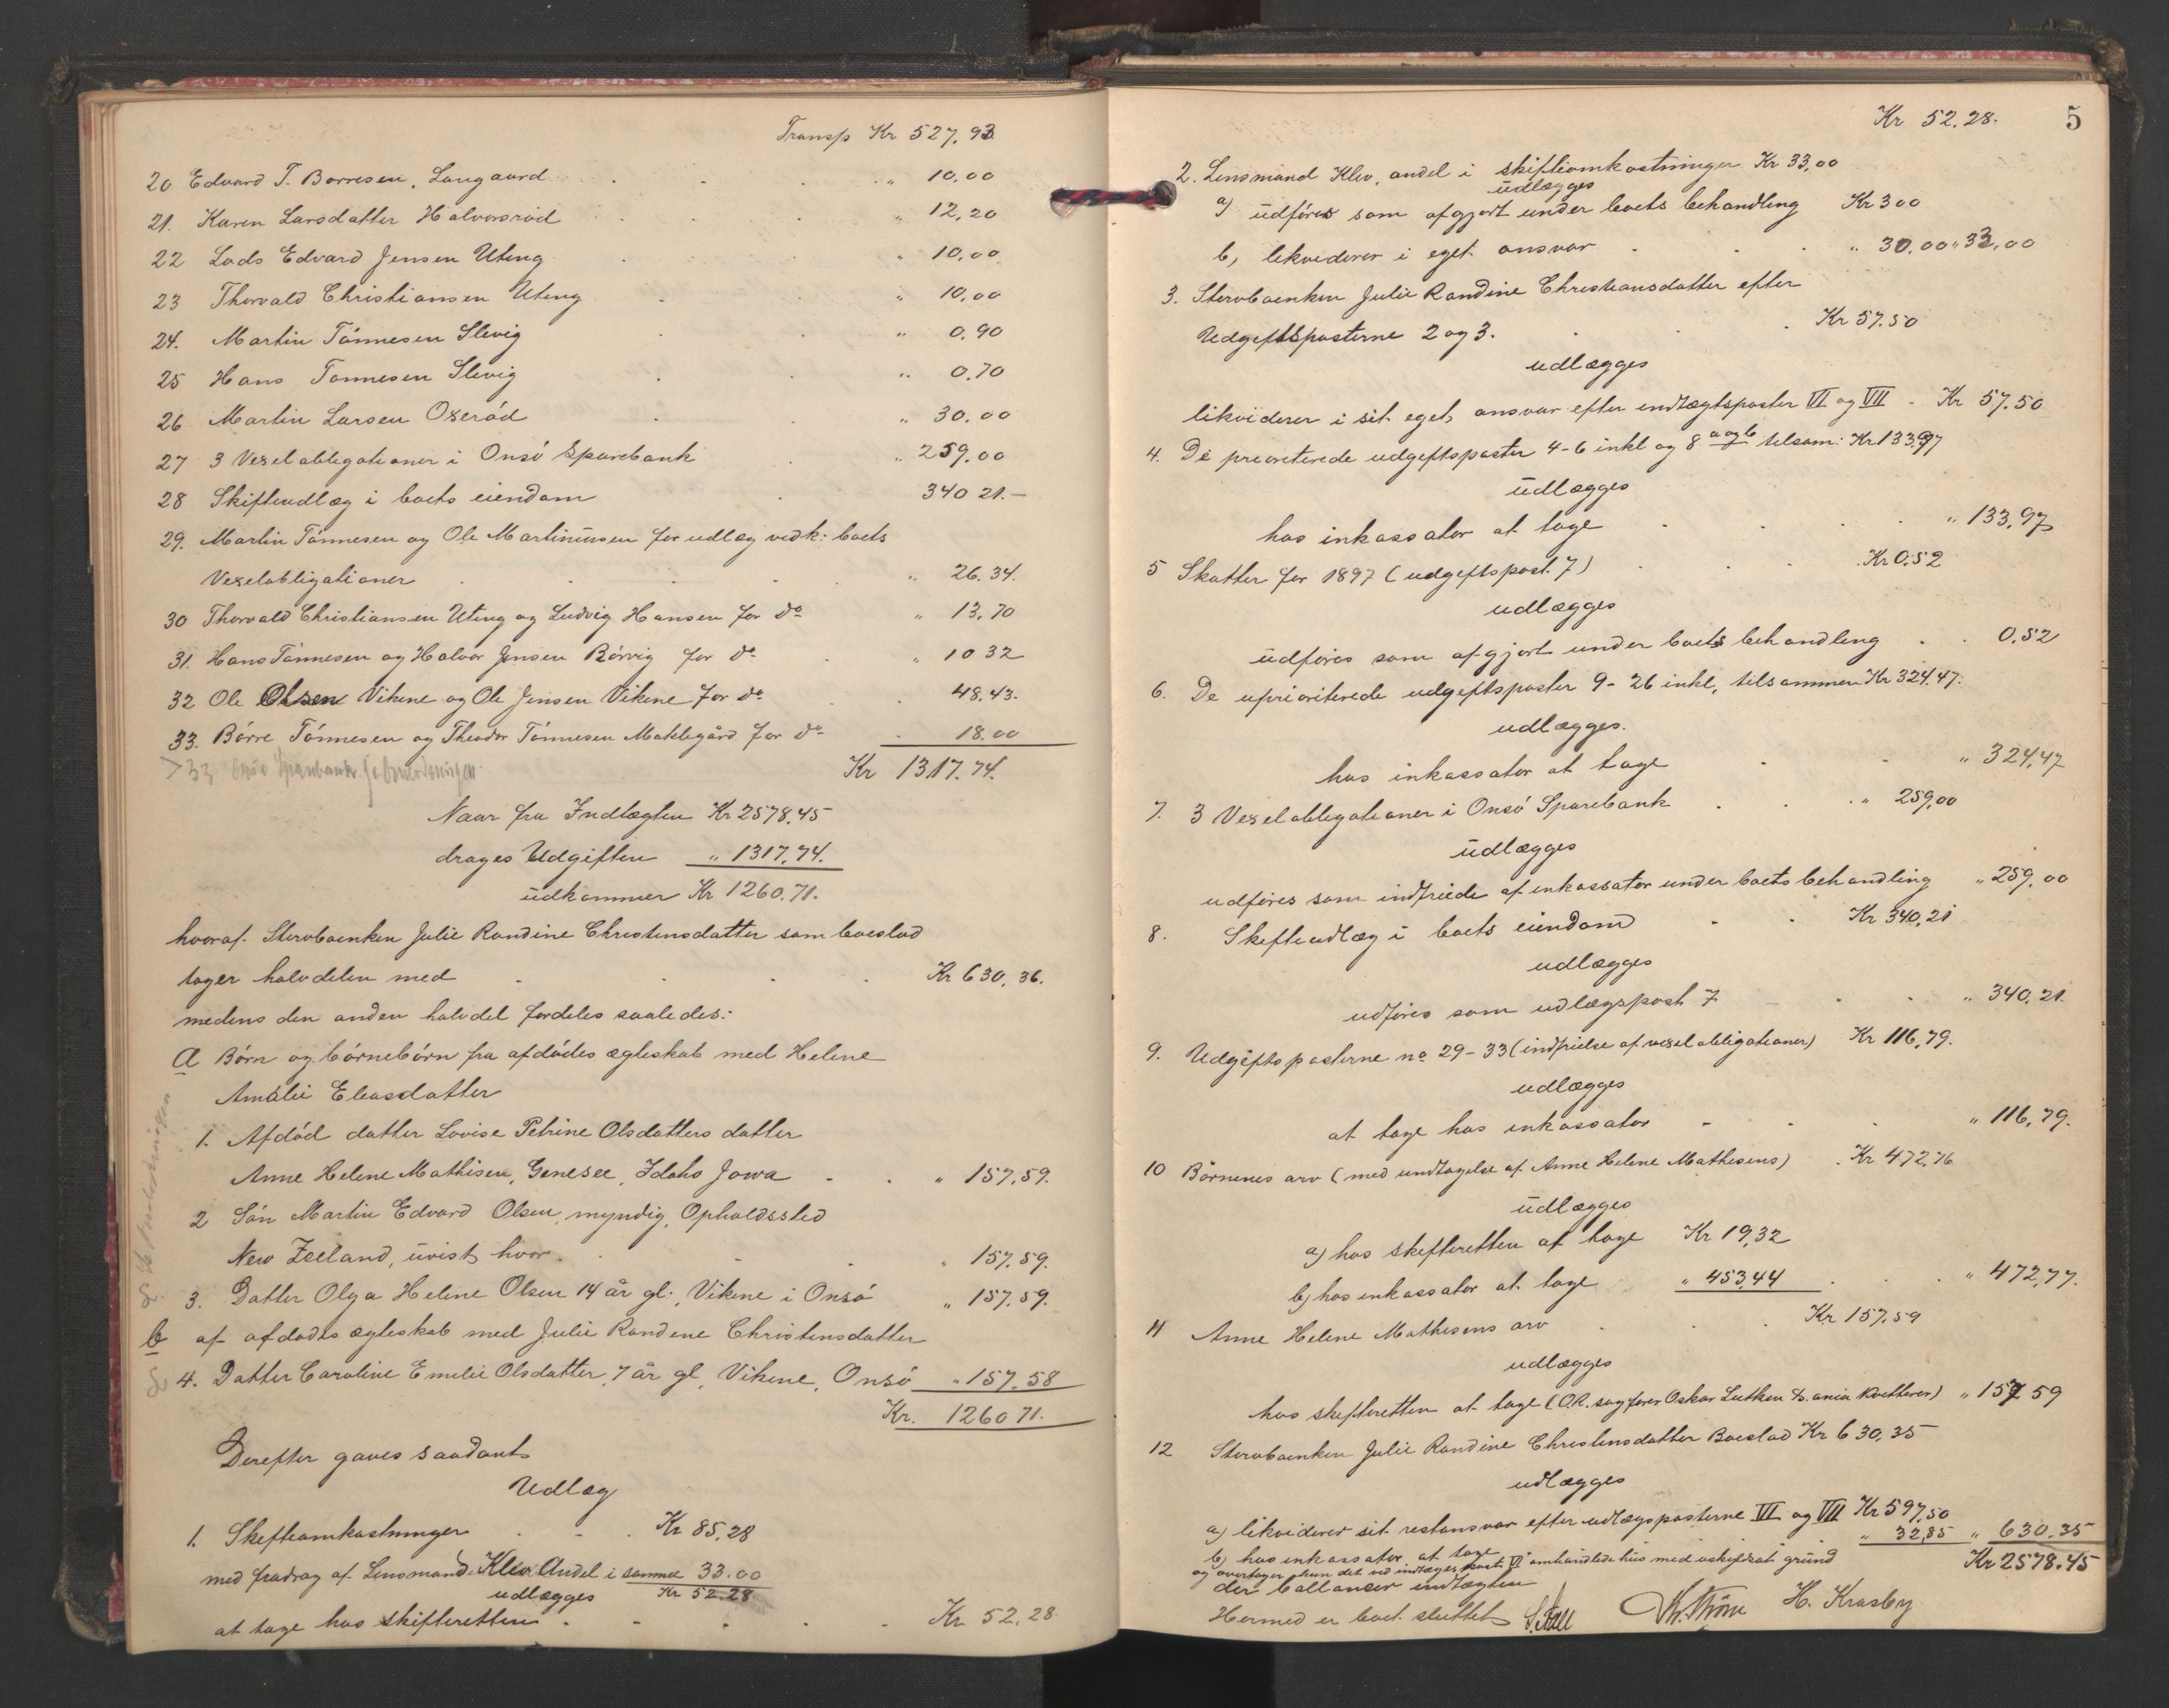 Transp Kr 527,93
20 Edvard T. Borresen, Langaard " 10,00
21. Karen Larsdatter Halvorsrød " 12,20
22 Lods Edvard Jensen Uteng " 10,00
23 Thorvald Christiansen Uteng " 10,00
24. Martin Tønnesen Slevig " 0,90
25 Hans Tonnesen Slevig " 0,70
26 Martin Larsen Oxerød " 30.00
27 3 Vexelobligationer i Onsø Sparebank " 259,00
28 Skifteudlæg i boets eiendom 340 21.-
29. Martin Tønnesen og Ole Martiniusen for udlæg vedk: boets
Vexelobligationer " 26.34.
30 Thorvald Christiansen Uteng og Ludvig Hansen for do " 13,70
31. Hans Tønnesen og Halvor Jensen Rörvig for do " 10 32
32 Ole Olsen Vikene og Ole Jensen Vikene for do 48,43.
33. Börre Tönnesen og Theodor Tönnesen Maklegård for do 18.00
Kr 1317.74.
Naar fra Indtægten Kr 2578,45
drages Udgiften " 1317,74.
udkommer Kr 1260.71.
hvoraf Stervboenken Julie Randine Christensdatter som boeslod
tager halvdelen med Kr 630,36.
medens den anden halvdel fordeles saaledes:
A Börn og börnebörn fra afdødes ægteskab med Helene
Amalie Eleasdatter
1. Afdöd datter Lovise Petrine Olsdatters datter
Anne Helene Mathisen, Genesee, Idaho Jowa " 157,59.
2 Sön Martin Edvard Olsen, myndig, Opholdssted
New Zeeland, uvist hvor " 157,59.
3. Datter Olga Helene Olsen 14 år gl., Vikene i Onsö " 157,59.
b af afdødes ægteskab med Julie Randene Christensdatter
4. Datter Caroline Emilie Olsdatter, 7 år gl, Vikene, Onsö " 157,58
Kr. 1260 71.
Derefter gaves saadant
Udlæg
1. Skifteomkostninger Kr 85,28
med fradrag af Lensmand Klev Andel i samme 33.00
udlægges Kr 52.28
at tage hos skifteretten Kr 52,28
5
Kr 52,28.
2. Lensmand Klev, andel i skifteomkostninger Kr 33,00
udlægges
a) udføres som afgjort under boets behandling Kr 3 00
b, likviderer i eget ansvar " 30.00 " 33,00
3. Stervboenken Julie Randine Christiansdatter efter
Udgiftsposterne 2 og 3. Kr 57.50
udlægges
likviderer i sit eget ansvar efter indtægtsposter VI og VII - Kr 57.50
4. De prioriterede udgiftsposter 4-6 inkl og 8 a og b tilsam: Kr 133,97
udlægges
hos inkassator at tage " 133,97
5 Skatter for 1897 (udgiftspost 7) Kr 0,52
udlægges
udføres som afgjort under boets behandling 0,52
6. De uprioriterede udgiftsposter 9-26 inkl, tilsammen Kr 324.47.
udlægges.
hos inkassator at tage " 324,47
7. 3 Vexelobligationer i Onsö Sparebank " 259,00
udlægges
udføres som indfriede af inkassator under boets behandling " 259,00
8. Skifteudlæg i boets eiendom Kr 340,21
udlægges
udføres som udlægspost 7 " 340,21.
9. Udgiftsposterne no 29-33 (indfrielse af vexelobligationer) Kr 116,79.
udlægges
at tage hos inkassator " 116,79.
10 Börnenes arv (med undtagelse af Anne Helene Mathesens) Kr 472,76
udlægges
a) hos skifteretten at tage Kr 19,32
b, hos inkassator at tage " 453,44 " 472,77.
11 Anne Helene Mathesens arv Kr 157,59
udlægges
hos skifteretten at tage (O.R. sagfører Oskar Lutken " 157 59
12 Stervboenken Julie Randine Christensdatter Boeslod Kr 630,35
udlægges
a) likviderer sit restansvar efter udlægsposterne VI og VII Kr 597,50
b) hos inkassator at tage " 32,85 " 630.35
og overtager hun det ved indtægts post VI omhandlede hus med uskiftet grund Kr 2578.45
der ballancer indtægten
Hermed er boet sluttet
Krström H. Krasby